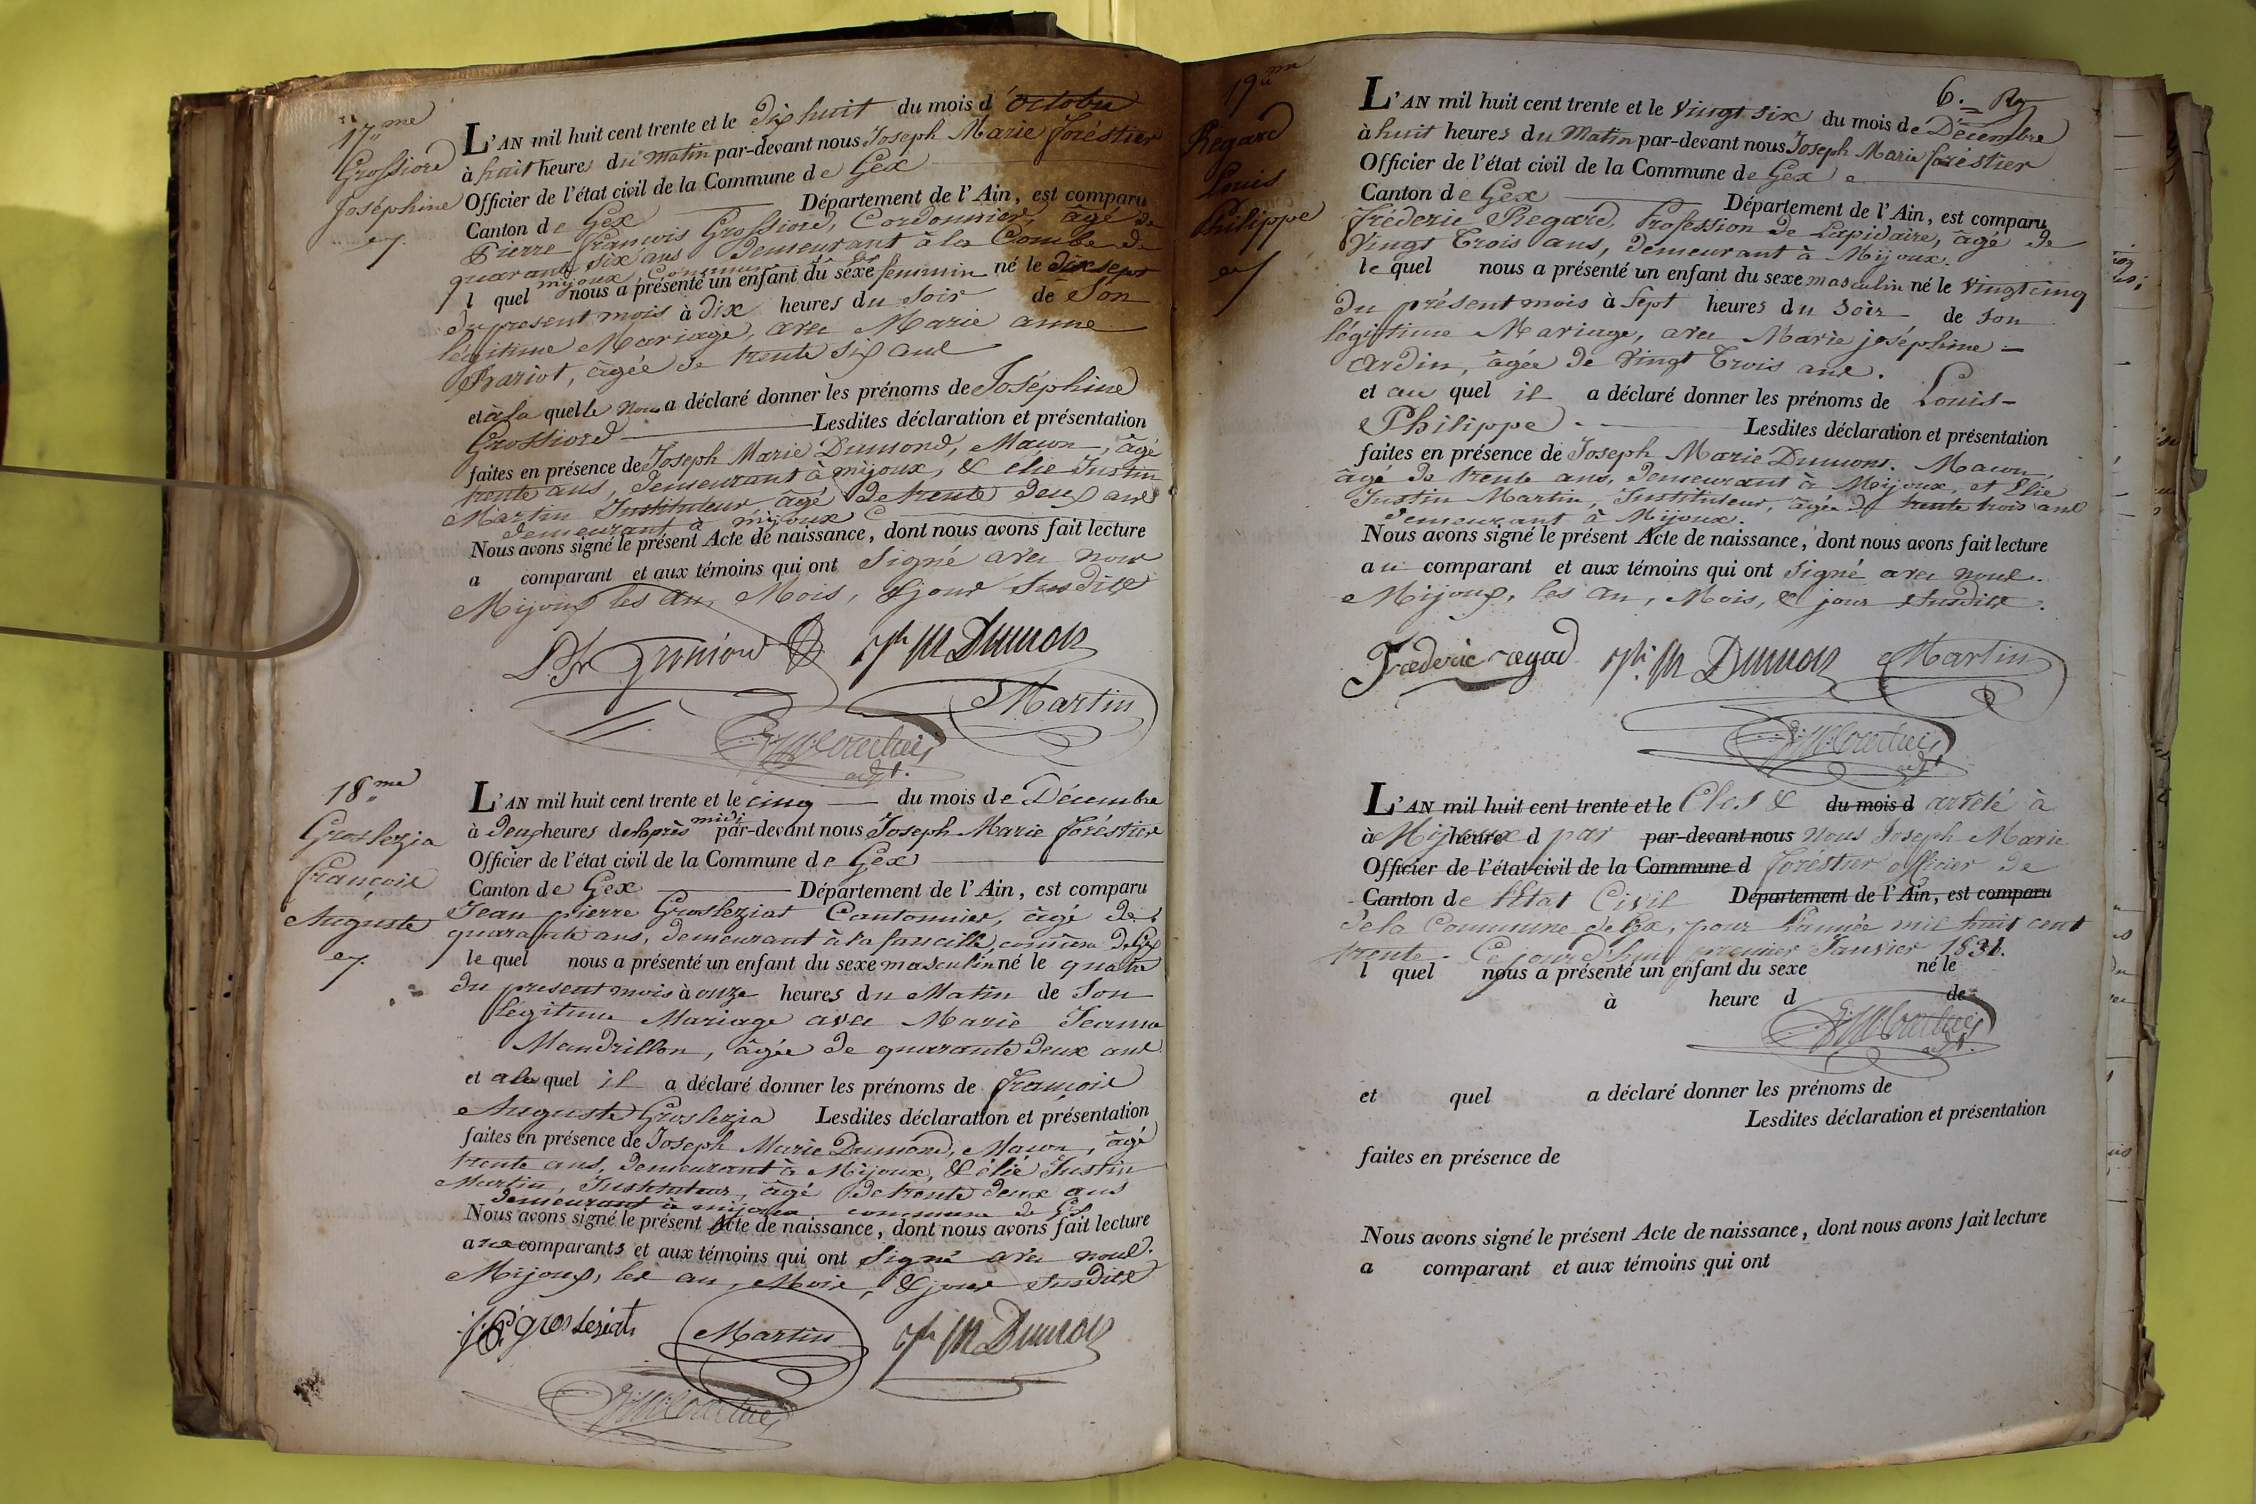 17.me
Grossiord
Joséphine
L'AN mil huit cent trente et le dix huit du mois d'octobre
à huit heures du matin par-devant nous Joseph Marie Foréstier
Officier de l'état civil de la Commune de Gex
Canton de Gex Département de l'Ain, est comparu
Pierre françois Grossiord, Cordonnier, âgé de
quarante six ans demeurant à la Combe de
mijoux,
l quel nous a présenté un enfant du sexe feminin né le dix sept
du present mois à dix heures du soir de Son
légitime Mariage, avec Marie anne
âgée de trente six ans
et à la quelle nous a déclaré donner les prénoms de Joséphine
Grossiord Lesdites déclaration et présentation
faites en présence de Joseph Marie Dumond, Macon, âgé
trente ans, demeurant à mijoux, & elie Justin
Martin Instituteur, âgé de trente deux ans
demeurant à mijoux
Nous avons signé le présent Acte de naissance, dont nous avons fait lecture
a comparant et aux témoins qui ont signé avec nous
Mijoux les an, Mois, & jour susdits
jph M Dumon
Martin
18.me
Groslezia
François
Auguste
L'AN mil huit cent trente et le cinq du mois de Décembre
à deux heures de l'après midi par-devant nous Joseph Marie Foréstier
Officier de l'état civil de la Commune de Gex
Canton de Gex Département de l'Ain, est comparu
Jean pierre Grosleziat Cantonnier, âgé de
quarante ans, demeurant à la faucille, commune de Gex
le quel nous a présenté un enfant du sexe masculin né le quatre
du present mois à onze heures du Matin de Son
légitime Mariage avec Marie Jeanne
Mandrillon, âgée de quarante deux ans
et a le quel il a déclaré donner les prénoms de françois
Auguste Groslezia Lesdites déclaration et présentation
faites en présence de Joseph Marie Dumond, Macon, âgé
trente ans, demeurant à Mijoux, & élie Justin
Martin, Instituteur, âgé de trente deux ans
demeurant à mijoux commune de Gex
Nous avons signé le présent Acte de naissance, dont nous avons fait lecture
aux comparants et aux témoins qui ont signé avec nous.
Mijoux, les an, Mois, & jour susdits
j. p. grosleziat
Martin
jph M Dumon
6.
19.me
Regard
Louis
Philippe
L'AN mil huit cent trente et le vingt six du mois de Décembre
à huit heures du Matin par-devant nous Joseph Marie foréstier
Officier de l'état civil de la Commune de Gex
Canton de Gex Département de l'Ain, est comparu
fréderic Regard, Profession de Lapidaire, âgé de
vingt trois ans, demeurant à Mijoux.
le quel nous a présenté un enfant du sexe masculin né le vingt cinq
du présent mois à sept heures du soir de son
légitime Mariage, avec Marie joséphine
ardin, âgée de vingt trois ans.
et au quel il a déclaré donner les prénoms de Louis-
Philippe Lesdites déclaration et présentation
faites en présence de Joseph Marie Dumons. Macon,
âgé de trente ans, demeurant à Mijoux, et Elie
Justin Martin, Instituteur, âgée de trente trois ans
demeurant à Mijoux.
Nous avons signé le présent Acte de naissance, dont nous avons fait lecture
au comparant et aux témoins qui ont signé avec nous.
Mijoux, les an, Mois, & jour susdits.
Fræderic regard jph M Dumon Martin
L'AN mil huit cent trente et le Clos & du mois d arrêté à
à Mijoux heure d par par-devant nous nous Joseph Marie
Officier de l'état civil de la Commune d foréstier officier de
Canton de l'Etat Civil Département de l'Ain, est comparu
de la Commune de Gex, pour l'année mil huit cent
trente. Ce jourd'hui premier Janvier 1831.
l quel nous a présenté un enfant du sexe né le
à heure d de
et quel a déclaré donner les prénoms de
Lesdites déclaration et présentation
faites en présence de
Nous avons signé le présent Acte de naissance, dont nous avons fait lecture
a comparant et aux témoins qui ont